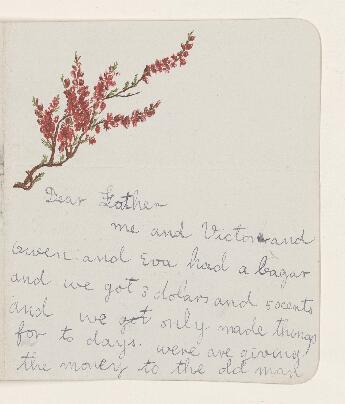 Dear Father
me and Victor and
Gwen and Eva had a bagar
and we got 3 dolars and 5 cents
and we got only made things
for to days. were are giving
the money to the old man